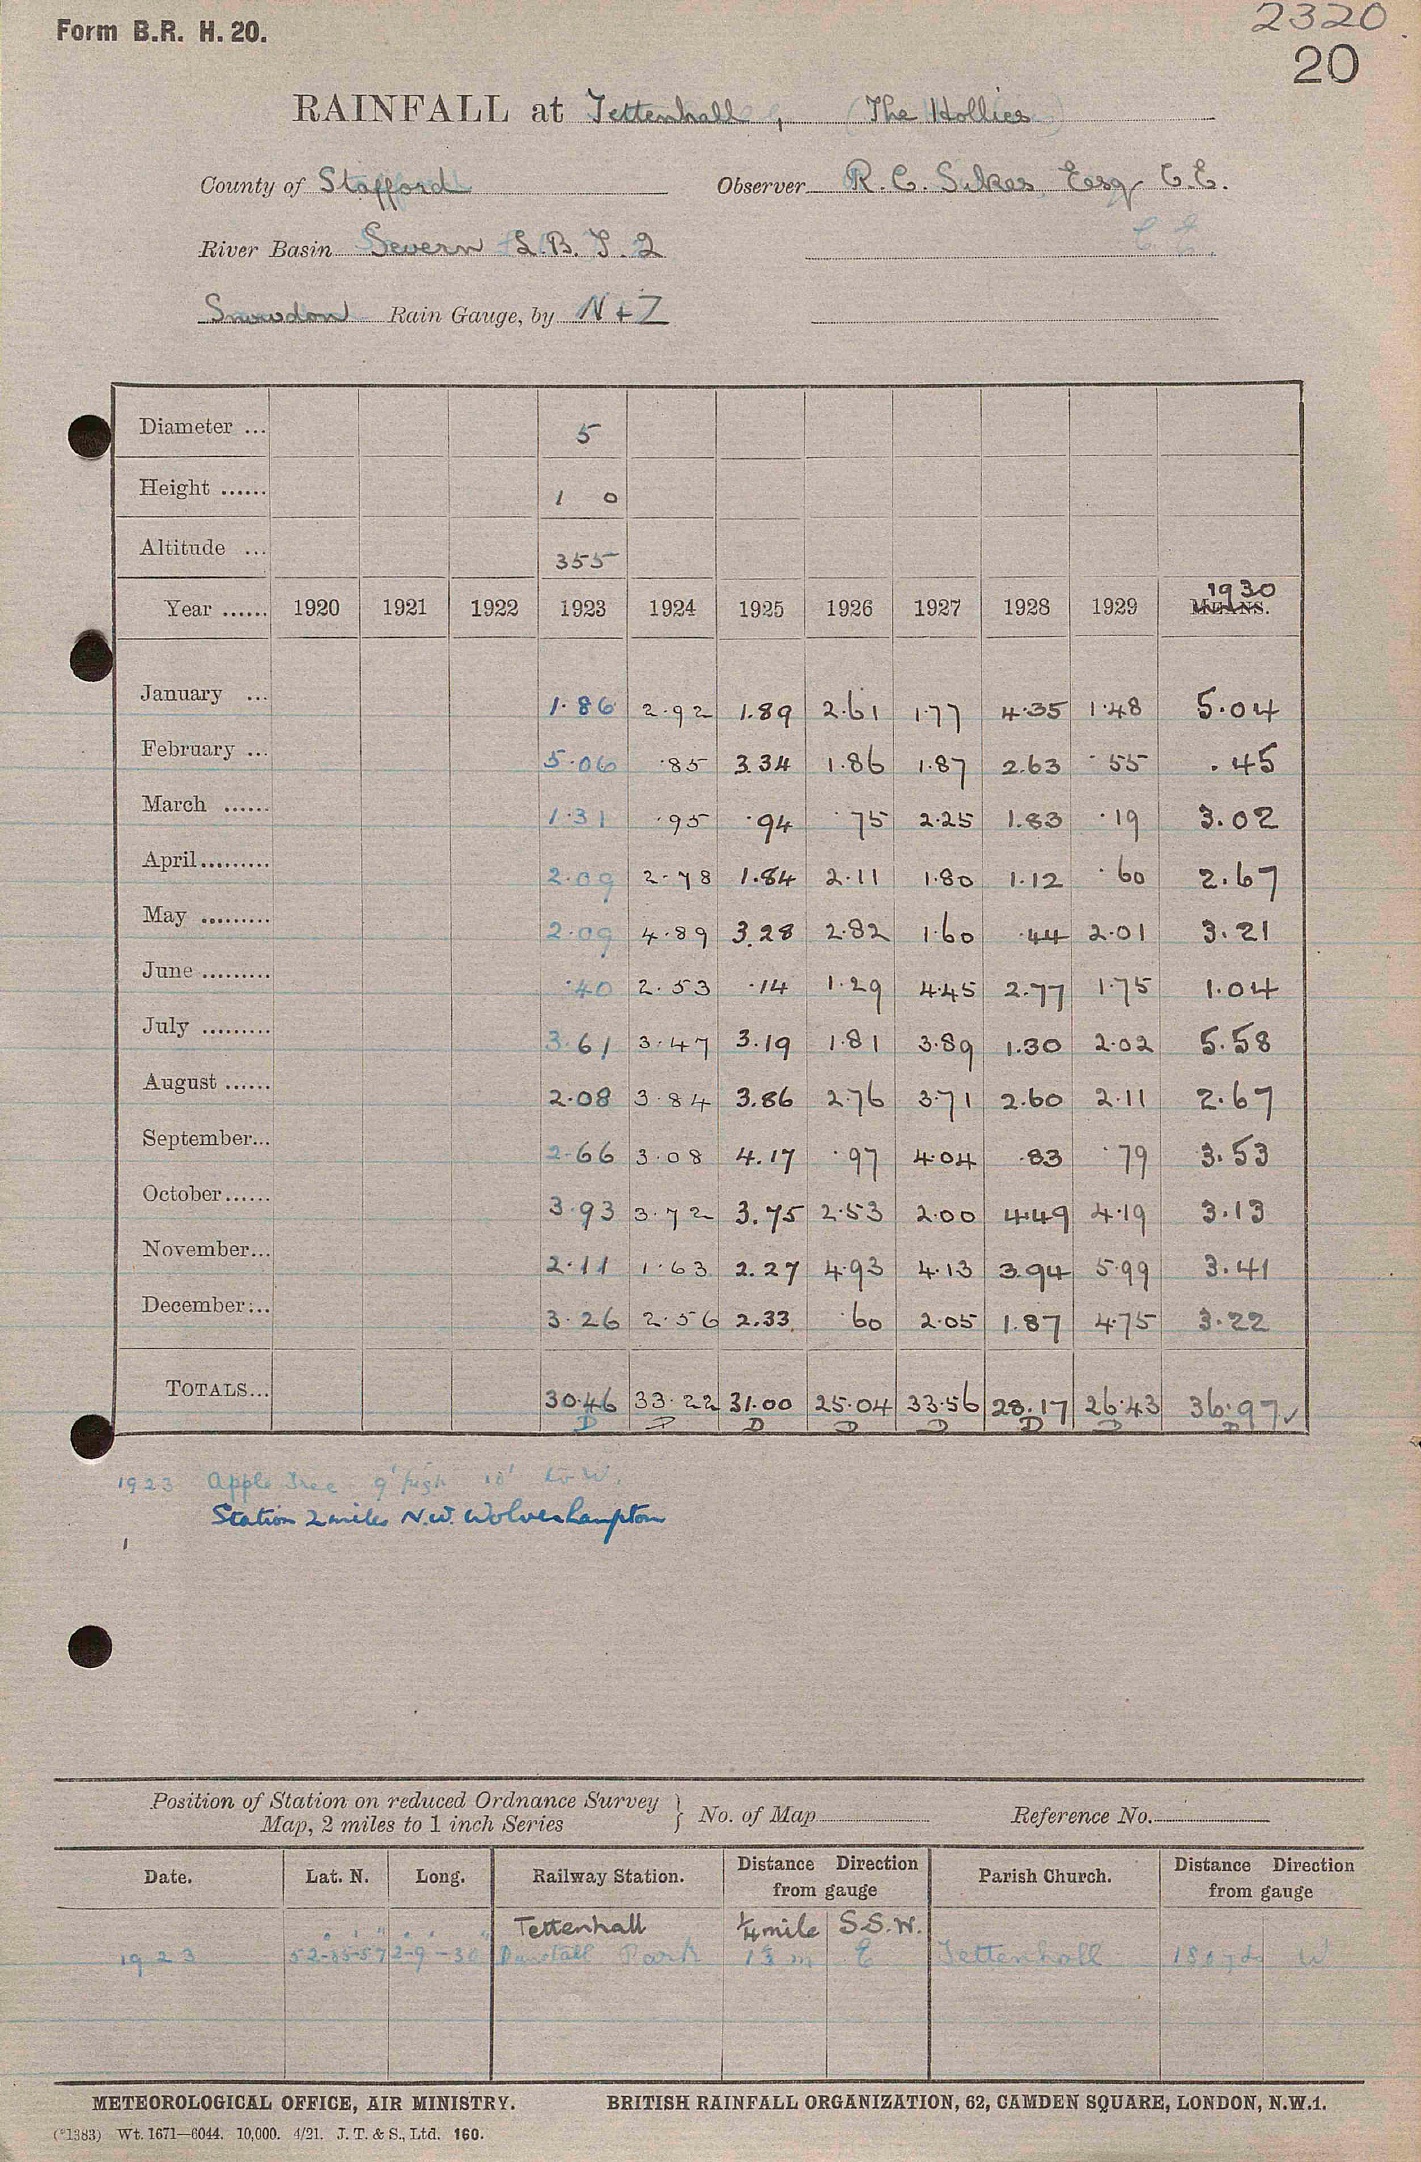 Form B.R. H. 20.
2320
20
RAINFALL at Tettenhall, (The Hollies)
County of Stafford Observer R.C. Sikes Esq C.E.
River Basin Severn L.B.T.2 C E
Snowdon Rain Gauge, by N + Z
Diameter ... 5
Height ...... 1 0
Altitude ... 355
Year ...... 1920 1921 1922 1923 1924 1925 1926 1927 1928 1929 1930 MEANS.
January ... 1.86 2.92 1.89 2.61 1.77 4.35 1.48 5.04
February ... 5.06 .85 3.34 1.86 1.87 2.63 .55 .45
March ...... 1.31 .95 .94 .75 2.25 1.83 .19 3.02
April ......... 2.09 2.78 1.84 2.11 1.80 1.12 .60 2.67
May ......... 2.09 4.89 3.28 2.82 1.60 .44 2.01 3.21
June ......... .40 2.53 .14 1.29 4.45 2.77 1.75 1.04
July ......... 3.61 3.47 3.19 1.81 3.89 1.30 2.02 5.58
August ...... 2.08 3.84 3.86 2.76 3.71 2.60 2.11 2.67
September... 2.66 3.08 4.17 .97 4.04 .83 .79 3.53
October...... 3.93 3.72 3.75 2.53 2.00 4.49 4.19 3.13
November... 2.11 1.63 2.27 4.93 4.13 3.94 5.99 3.41
December... 3.26 2.56 2.33 .60 2.05 1.87 4.75 3.22
TOTALS... 30.46 33.22 31.00 25.04 33.56 28.17 26.43 36.97 ✓
D D D D D D D D
1923 Apple Tree 9' high 10' to W.
Station 2 miles N.W. Wolverhampton
Position of Station on reduced Ordnance Survey
Map, 2 miles to 1 inch Series } No. of Map Reference No.
Date. Lat. N. Long. Railway Station. Distance Direction from gauge Parish Church. Distance Direction from gauge
Tettenhall ¼ mile S.S.W.
1923 52-35-57 2-9-30 Dunstall Park E Tettenhall W
METEOROLOGICAL OFFICE, AIR MINISTRY. BRITISH RAINFALL ORGANIZATION, 62, CAMDEN SQUARE, LONDON, N.W.1.
(*1383) Wt. 1671—6044. 10,000. 4/21. J. T. & S., Ltd. 160.